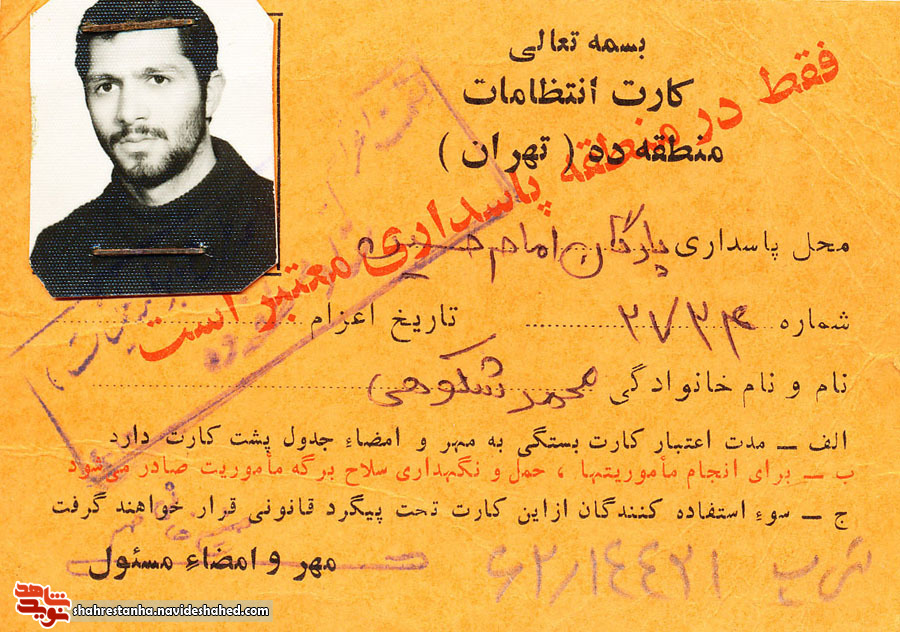 بسمه تعالی
کارت انتظامات
منطقه ده ( تهران )
فقط در منطقه پاسداری معتبر است
محل پاسداری پادگان امام حسین
شماره ۲۷۲۴ تاریخ اعزام
نام و نام خانوادگی محمد شکوهی
الف ــ مدت اعتبار کارت بستگی به مهر و امضاء جدول پشت کارت دارد
ب ــ برای انجام مأموریتها ، حمل و نگهداری سلاح برگه مأموریت صادر می‌شود
ج ــ سوء استفاده کنندگان ازاین کارت تحت پیگرد قانونی قرار خواهند گرفت
مهر و امضاء مسئول
۶۲/۱۴۴۲۱
نوید شاهد
shahrestanha.navideshahed.com